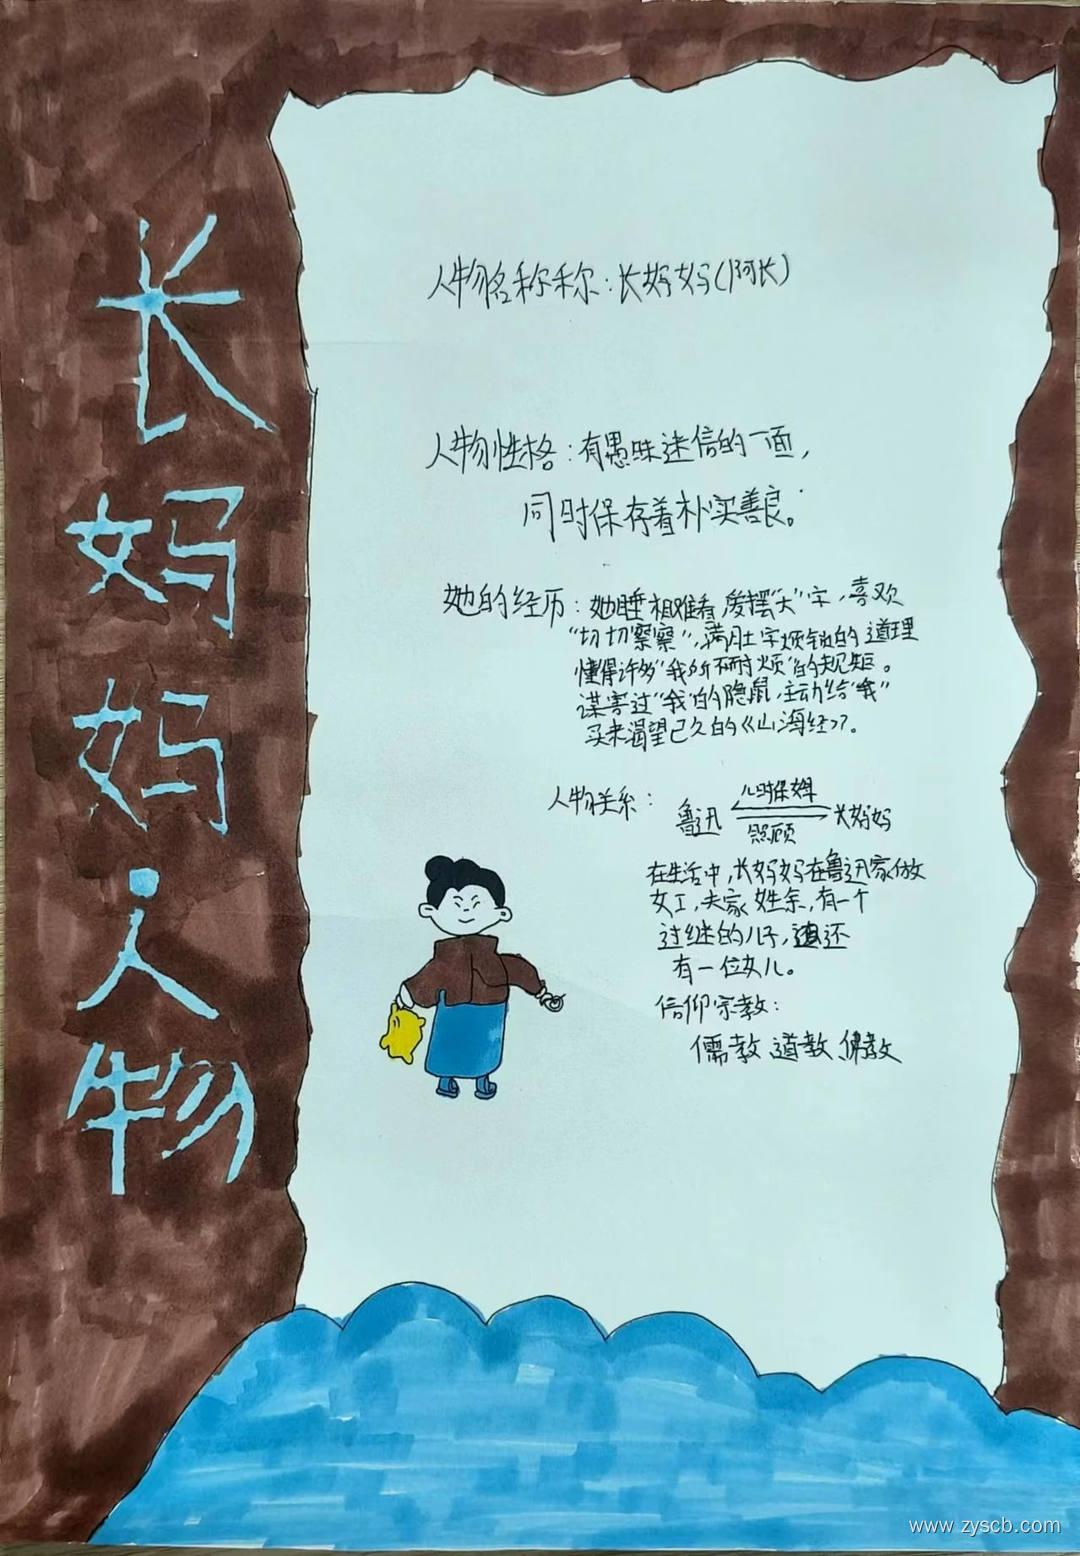 长妈妈人物
人物名称称：长妈妈（阿长）
人物性格：有愚昧迷信的一面，
同时保存着朴实善良。
她的经历：她睡相难看，爱摆“大”字，喜欢
“切切察察”，满肚子烦锁的道理
懂得许多“我所不耐烦”的规矩。
谋害过“我”的隐鼠，主动给“我”
买来渴望已久的《山海经》？。
人物关系：
儿时保姆
鲁迅 长妈妈
照顾
在生活中，长妈妈在鲁迅家做
女工，夫家姓余，有一个
过继的儿子，还
有一位女儿。
信仰宗教：
儒教、道教、佛教
www.zyscb.com